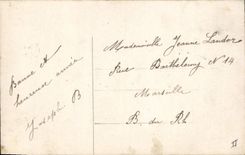 Bonne et
heureuse année
Joseph B
Mademoiselle Jeanne Landor
Rue Barthélemy N° 14
Marseille
B. du Rh